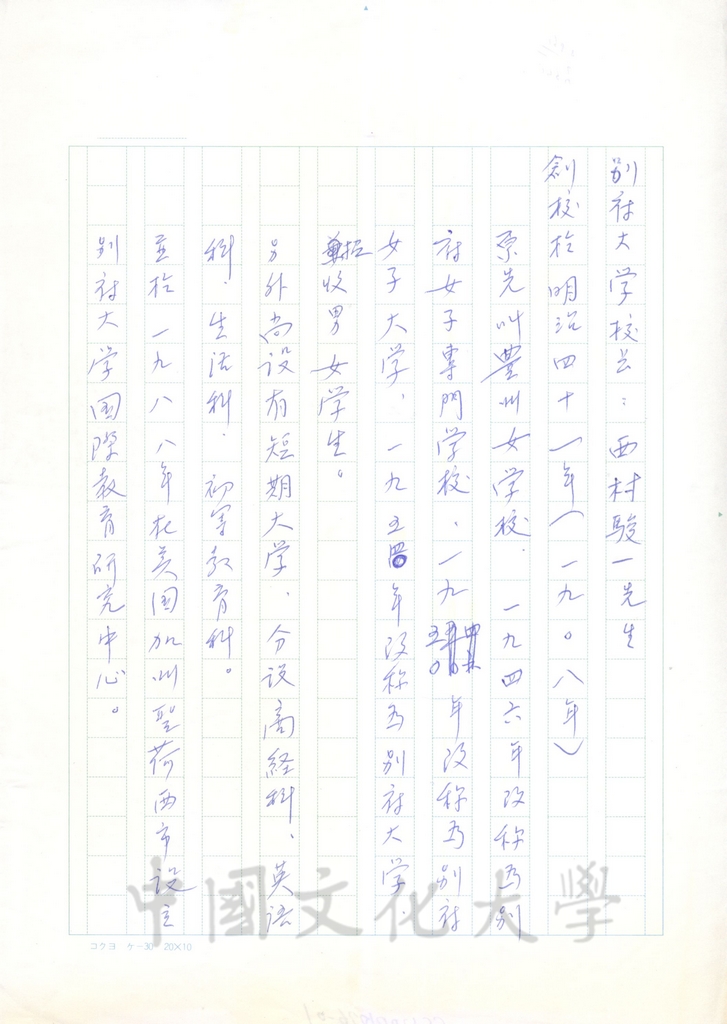 別府大学校长：西村駿一先生
創校於明治四十一年（一九〇八年）
原先叫豊州女学校．一九四六年改称為別
府女子專門学校．一九五〇年改称為別府
女子大学．一九五四年改称為別府大学．
招收男女学生。
另外尚設有短期大学．分設商経科．英語
科．生活科．初等教育科。
並於一九八八年在美国加州聖荷西市設立
別府大学国際教育研究中心。
コクヨ ケ-30 20×10
中國文化大學